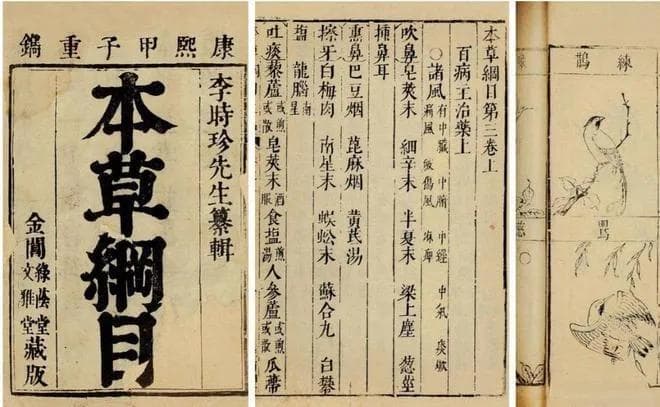 康熙甲子重鐫
李時珍先生纂輯
本草綱目
金閶
綠蔭堂
文雅堂
藏版
本草綱目第三卷上
百病主治藥上
○諸風 有中臟 中腑 中經 中氣 痰厥
痛風 破傷風 麻痺
吹鼻皂莢末 細辛末 半夏末 梁上塵 葱莖
插鼻耳
熏鼻巴豆烟 蓖麻烟 黃芪湯
擦牙白梅肉 南星末 蜈蚣末 蘇合丸 白礬
塩 龍腦南星
吐痰藜蘆或煎或散 皂莢末酒服 食塩煎湯 人參蘆或煎或散 瓜蒂
練鵲